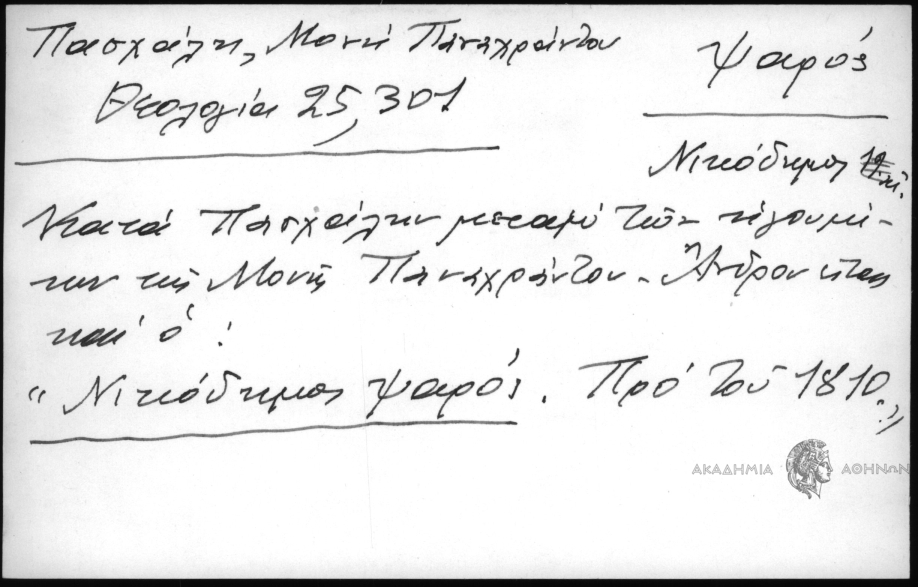 Πασχάλη, Μονή Παναχράντου
Θεολογία 25, 301
Ψαρός
Νικόδημος
Κατά Πασχάλην μεταξύ τῶν ἡγουμέ-
νων τῆς Μονῆς Παναχράντου - Ἄνδρου ἦτας
καί ὁ :
“Νικόδημος Ψαρός. Πρό τοῦ 1810.„
ΑΚΑΔΗΜΙΑ ΑΘΗΝΩΝ